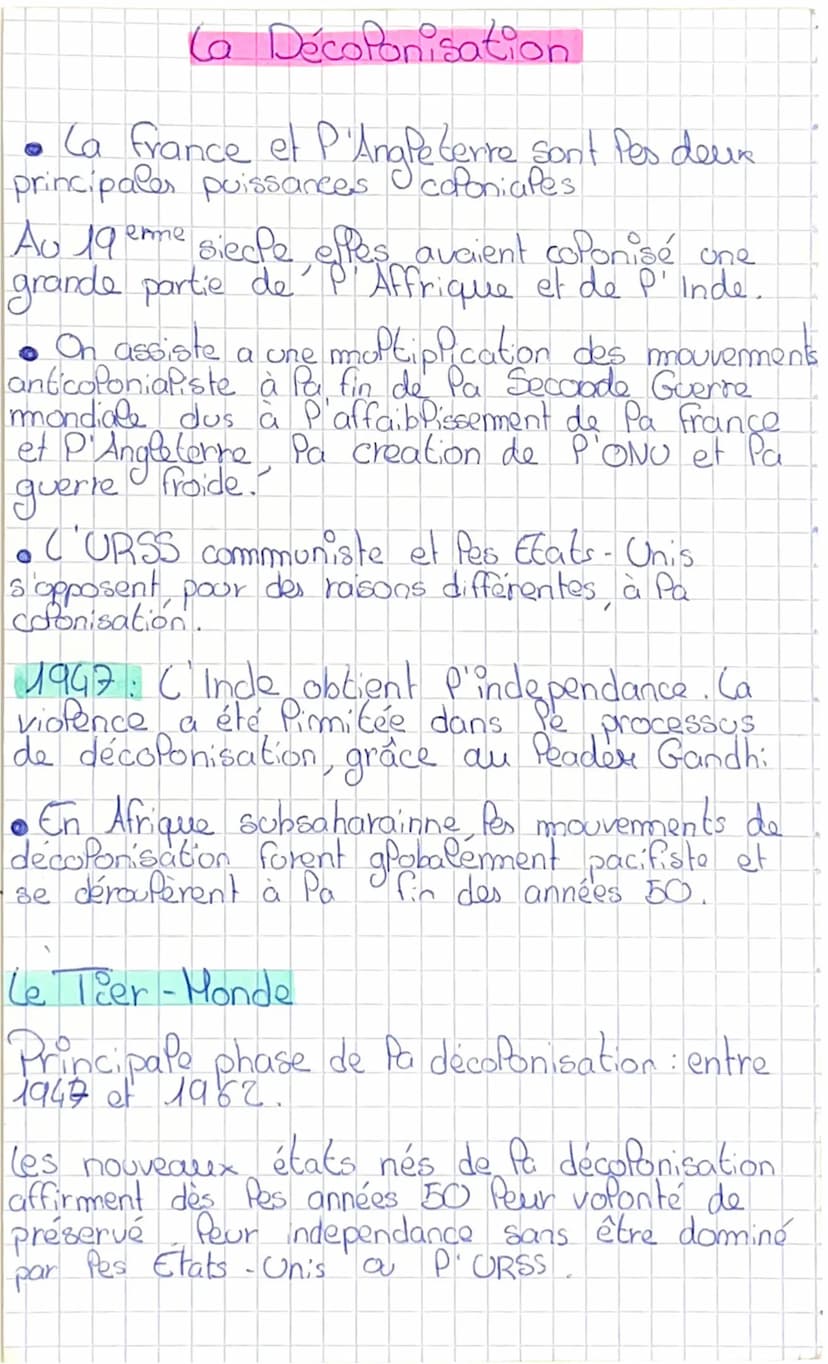 La Décolonisation
• La france et l'Angleterre sont les deux
principales puissances coloniales
Au 19eme siecle elles avaient colonisé une
grande partie de l'Affrique et de l'Inde.
• On assiste a une multiplication des mouvements
anticolonialiste à la fin de la Seconde Guerre
mondiale dus à l'affaiblissement de la france
et l'Angleterre, la creation de l'ONU et la
guerre froide.
• L'URSS communiste et les Etats-Unis
s'opposent, pour des raisons différentes, à la
colonisation.
1947: L'Inde obtient l'independance. La
violence a été limitée dans le processus
de décolonisation, grâce au leader Gandhi
• En Afrique subsaharainne, les mouvements de
décolonisation furent globalement pacifiste et
se déroulèrent à la fin des années 50.
Le Tier-Monde
Principale phase de la décolonisation: entre
1947 et 1962.
Les nouveaux états nés de la décolonisation
affirment dès les années 50 leur volonté de
préservé leur independance sans être dominé
par les Etats-Unis ou l'URSS.